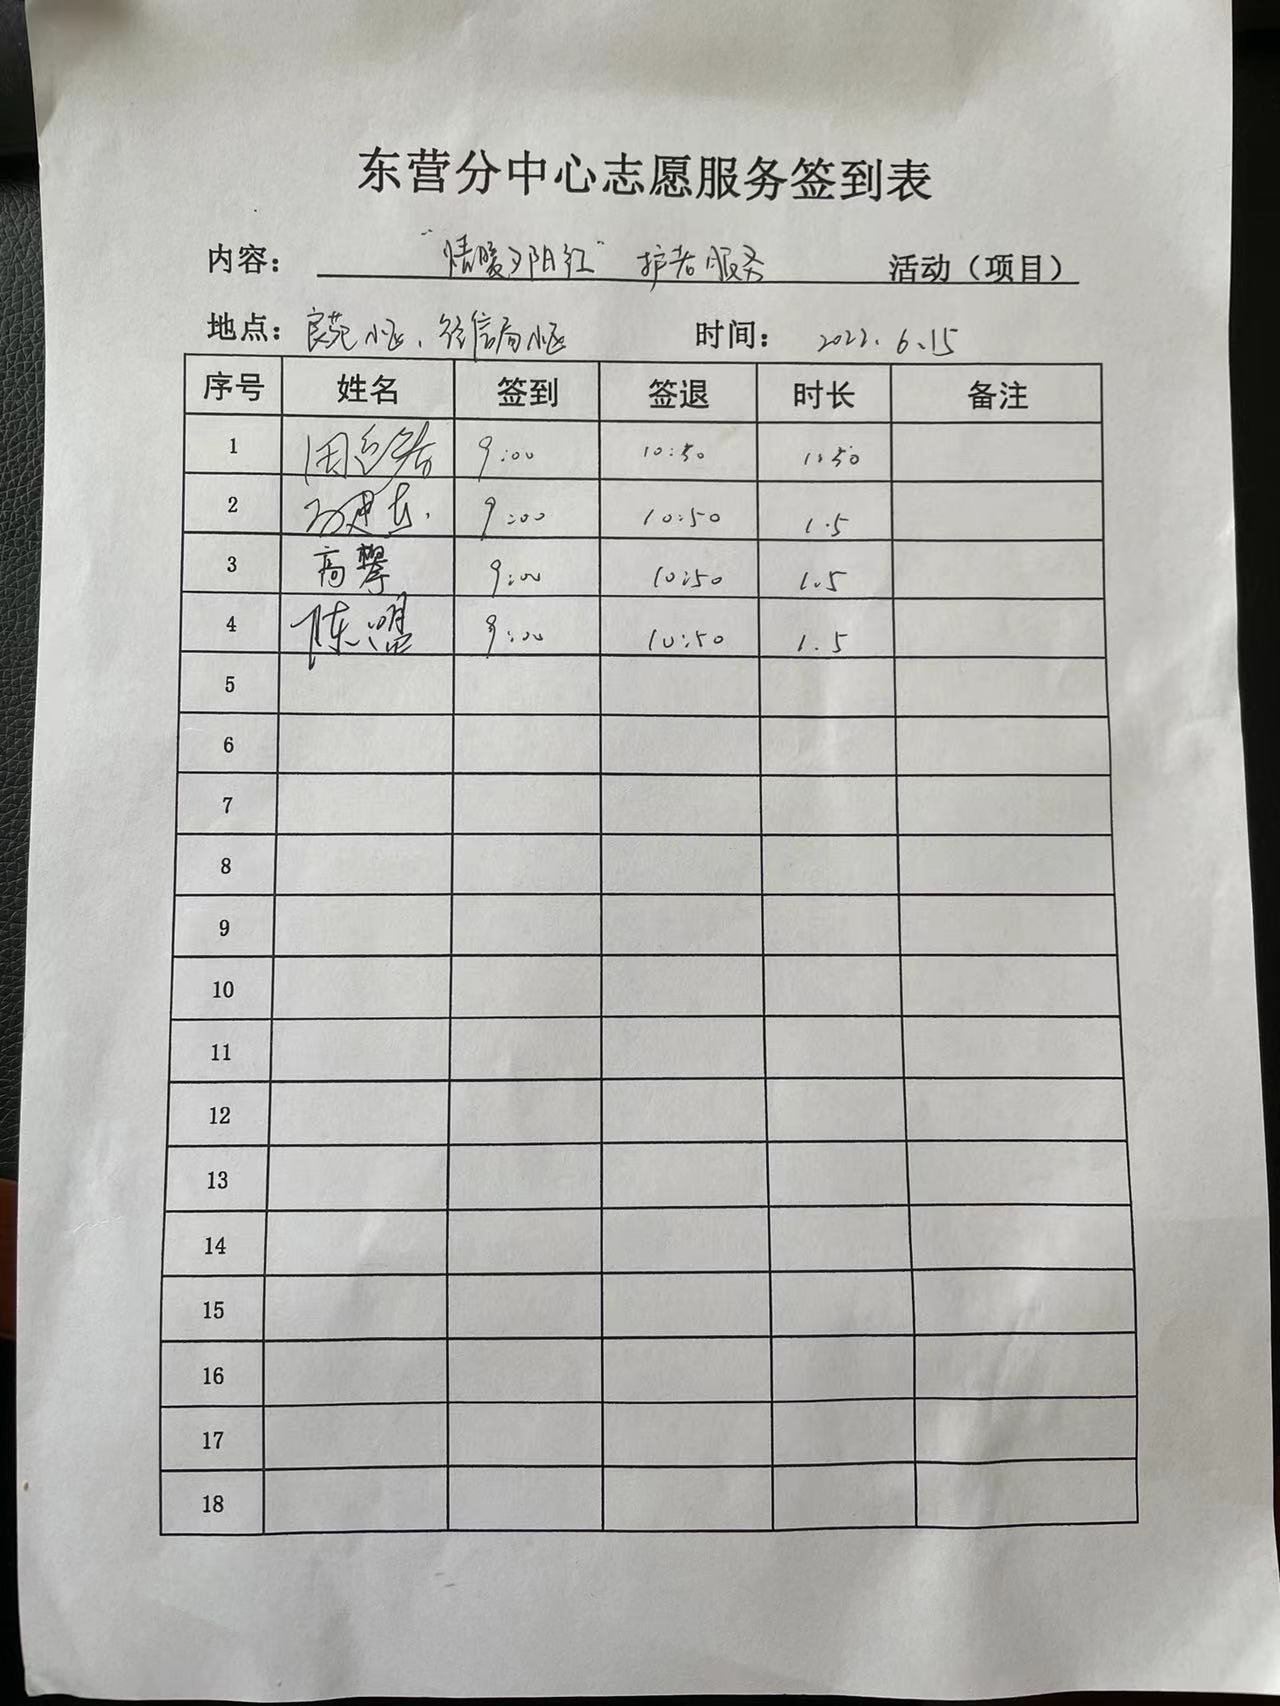 东营分中心志愿服务签到表
内容： “情暖夕阳红”护老服务 活动（项目）
地点：良苑小区、 小区 时间： 2022.6.15
序号 姓名 签到 签退 时长 备注
1 9:00 10:50 1:50
2 9:00 10:50 1.5
3 高攀 9:00 10:50 1.5
4 陈盟 9:00 10:50 1.5
5
6
7
8
9
10
11
12
13
14
15
16
17
18